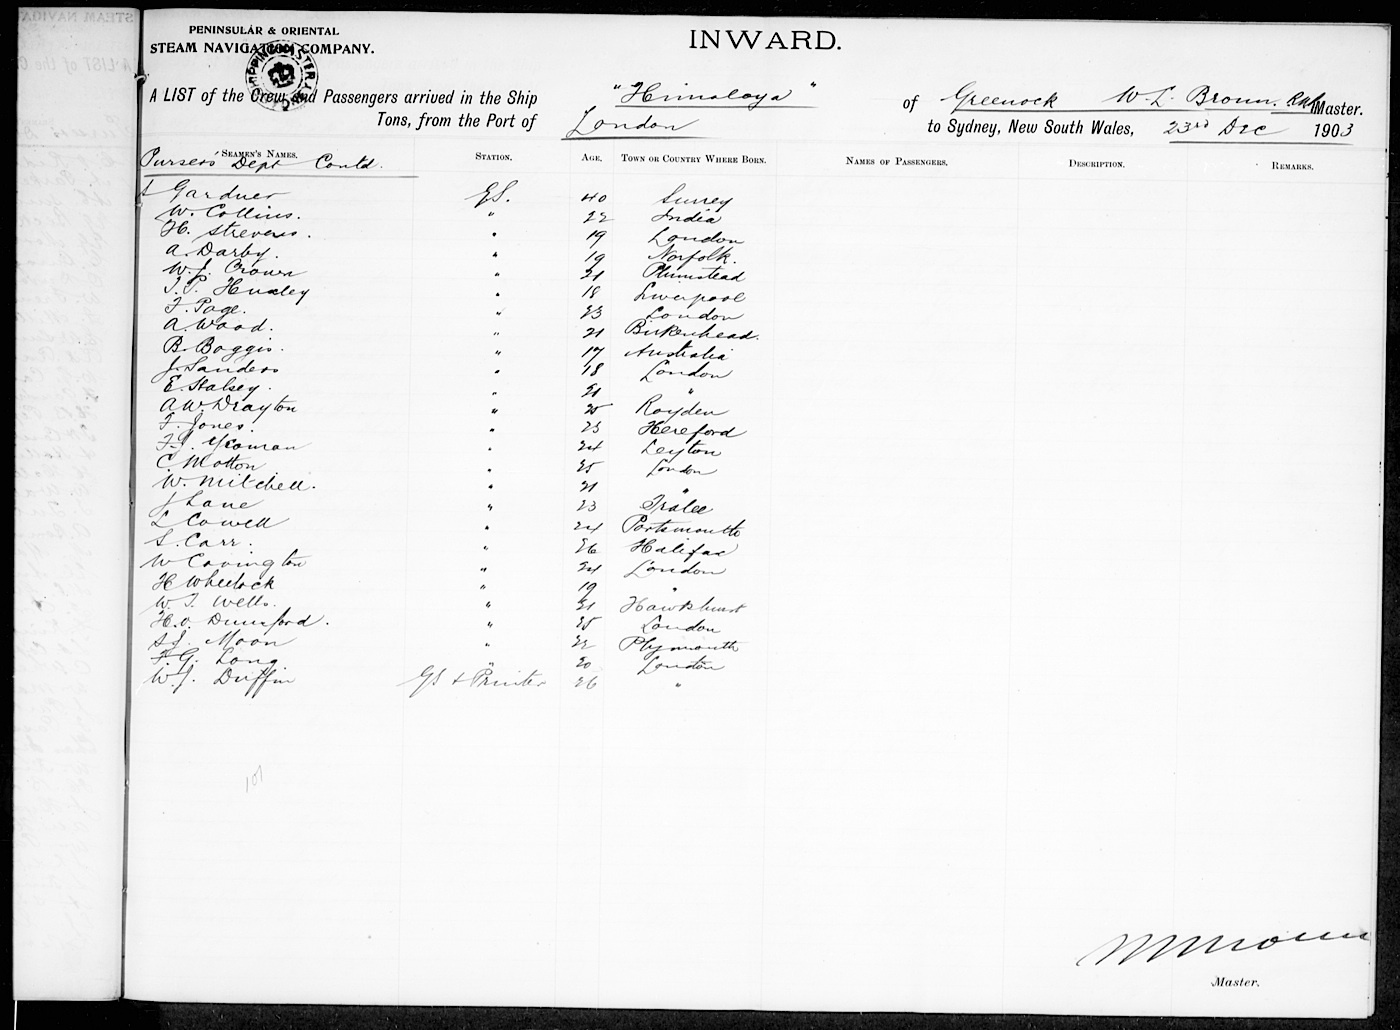 PENINSULAR & ORIENTAL
STEAM NAVIGATION COMPANY.
INWARD.
A LIST of the Crew and Passengers arrived in the Ship "Himalaya" of Greenock W. L. Broun. RNR Master.
Tons, from the Port of London to Sydney, New South Wales, 23rd Dec 1903
SEAMEN'S NAMES. STATION. AGE. TOWN OR COUNTRY WHERE BORN. NAMES OF PASSENGERS. DESCRIPTION. REMARKS.
Pursers' Dept Contd.
Gardner GS. 40 Surrey
W. Collins. " 22 India
H. Strevens. " 19 London
A. Darby. " 19 Norfolk.
W. J. Crown " 21 Plumstead
Huxley " 18 Liverpool
F. Page. " 23 London
A. Wood. " 21 Birkenhead.
B. Boggis. " 17 Australia
J. Sanders " 18 London
E. Halsey. " 21 "
A. W. Drayton " 25 Royden
F. Jones. " 23 Hereford
F. J. Yeoman " 24 Leyton
C. Motton " 25 London
W. Mitchell. " 21 "
J Lane " 23 Tralee
L Cowell " 24 Portsmouth
S. Carr. " 26 Halifax
W Covington " 24 London
H Wheelock " 19 "
W. T. Wells. " 21 Hawkhurst
H. O. Durnford. " 25 London
S. J. Moon " 22 Plymouth
F. G. Long. " 20 London
W. J. Duffin GS & Printer 26 "
101
Master.